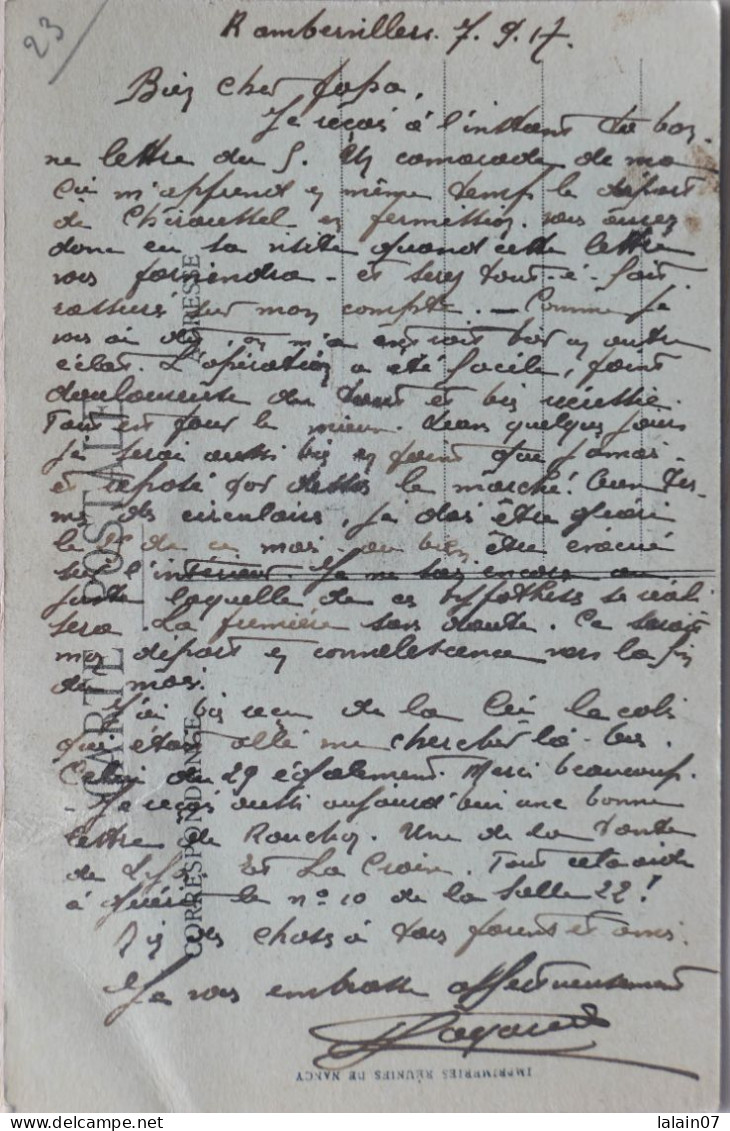 23
Rambervillers. 7. 9. 17.
Bien cher Papa,
Je reçois à l'instant ta bon-
ne lettre du 5. Un camarade de ma
Cie m'apprend en même temps le départ
de en permission. vous aurez
donc eu sa visite quand cette lettre
vous parviendra - et serez tout-à-fait
rassurés sur mon compte. — Comme je
vous ai dit, on m'a enlevé un autre
éclat. L'opération a été facile, point
douloureuse du tout et bien réussie.
Tout est pour le mieux. Dans quelques jours
je serai aussi bien en point que jamais -
et reposé par dessus le marché! Aux ter-
mes des circulaires, je dois être guéri
le de ce mois - ou bien être évacué
sur l'intérieur. Je ne sais encore au
juste laquelle de ces hypothèses se réali
sera. La première sans doute. Ce serait
mon départ en convalescence vers la fin
du mois.
J'ai bien reçu de la Cie le colis
qui était allé me chercher là-bas.
Celui du 29 également. Merci beaucoup.
Je reçois aussi aujourd'hui une bonne
lettre de . Une de la tante
de Lyon. Et La Croix. Tout cela aide
à guérir le n° 10 de la Salle 22!
des choses à tous parents et amis.
Je vous embrasse affectueusement
CARTE POSTALE
CORRESPONDANCE
ADRESSE
IMPRIMERIES RÉUNIES DE NANCY
lalain07